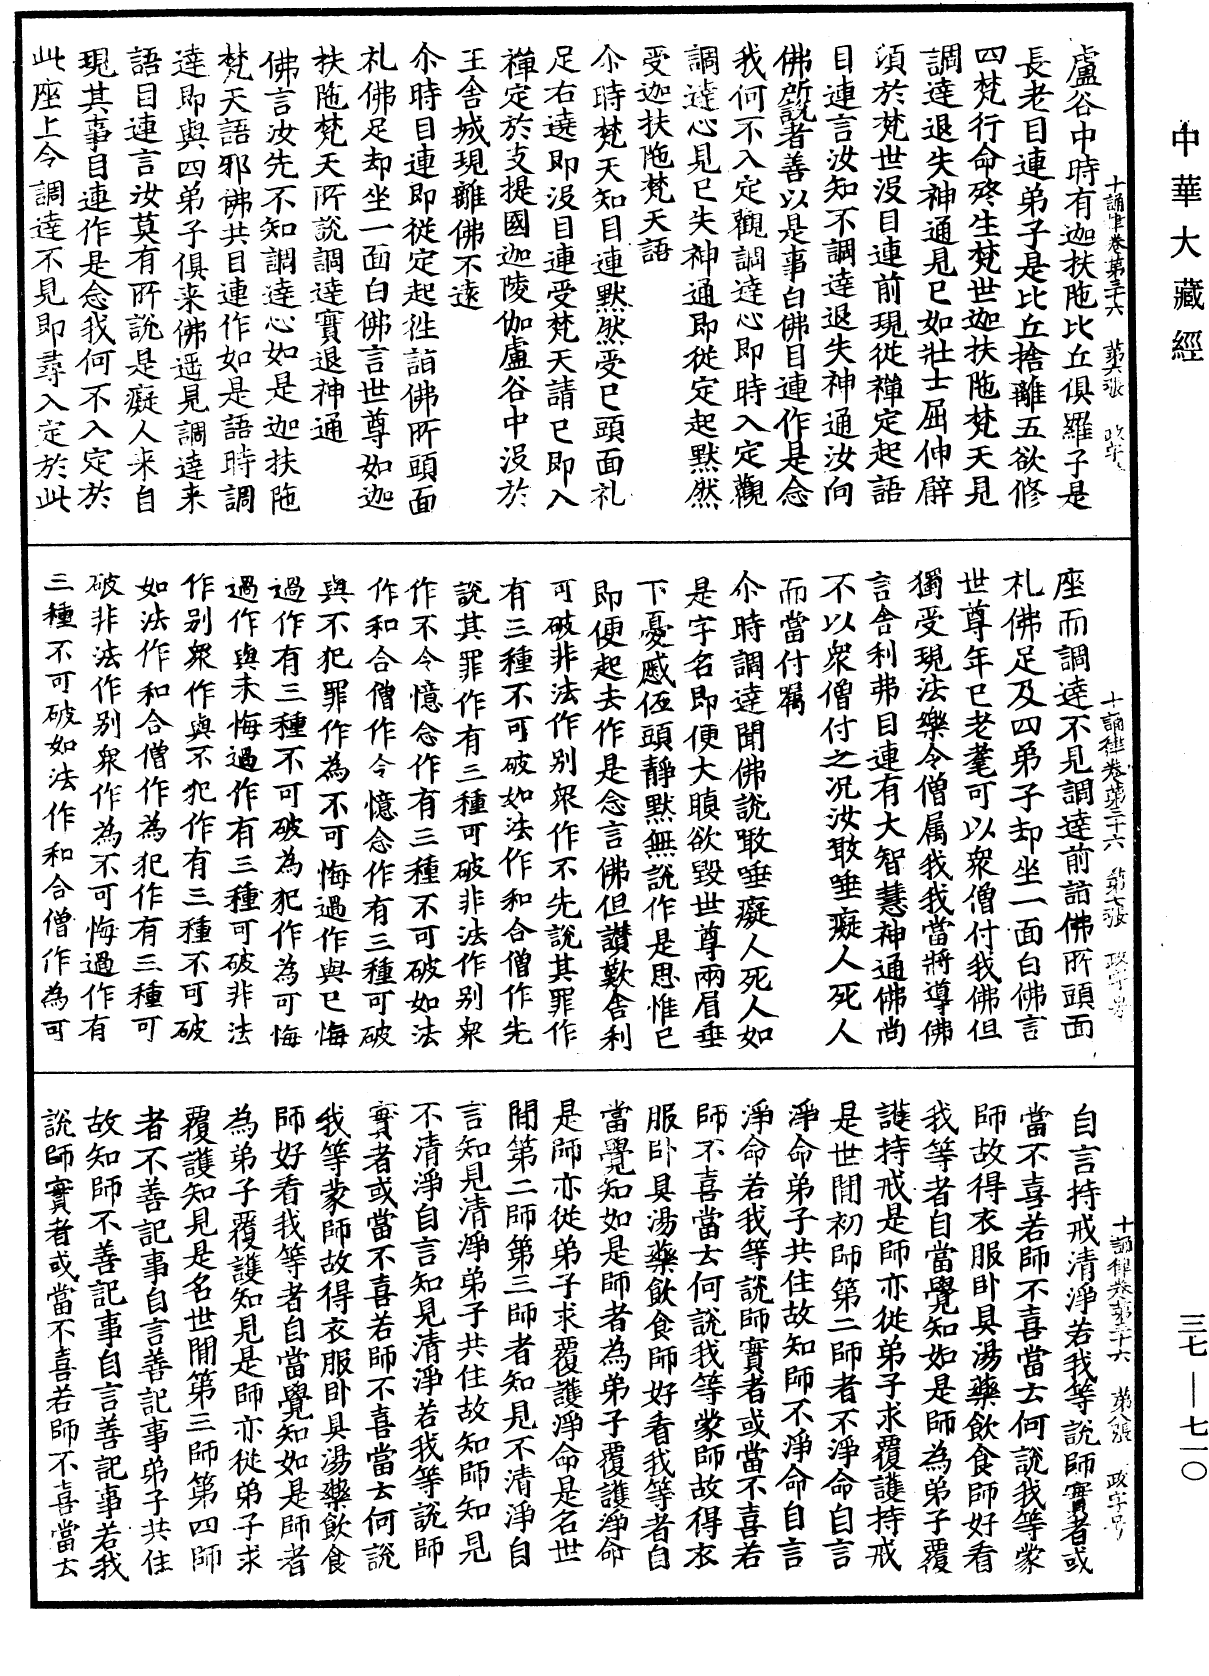 中華大藏經
十誦律卷第三十六 第六張 政字号
盧谷中時有迦扶陁比丘俱羅子是
長老目連弟子是比丘捨離五欲修
四梵行命終生梵世迦扶陁梵天見
調達退失神通見已如壯士屈伸臂
須於梵世沒目連前現從禪定起語
目連言汝知不調達退失神通汝向
佛所說者善以是事白佛目連作是念
我何不入定觀調達心即時入定觀
調達心見已失神通即從定起默然
受迦扶陁梵天語
尒時梵天知目連默然受已頭面礼
足右遶即沒目連受梵天請已即入
禪定於支提國迦陵伽盧谷中沒於
王舍城現離佛不遠
尒時目連即從定起往詣佛所頭面
礼佛足却坐一面白佛言世尊如迦
扶陁梵天所說調達實退神通
佛言汝先不知調達心如是迦扶陁
梵天語邪佛共目連作如是語時調
達即與四弟子俱來佛遥見調達来
語目連言汝莫有所說是癡人来自
現其事目連作是念我何不入定於
此座上令調達不見即尋入定於此
十誦律卷第三十六 第七張 政字号
座而調達不見調達前詣佛所頭面
礼佛足及四弟子却坐一面白佛言
世尊年已老耄可以衆僧付我佛但
獨受現法樂令僧属我我當將導佛
言舍利弗目連有大智慧神通佛尚
不以衆僧付之况汝敢唾癡人死人
而當付囑
尒時調達聞佛說敢唾癡人死人如
是字名即便大瞋欲毀世尊兩眉垂
下憂慼伍頭靜默無說作是思惟已
即便起去作是念言佛但讃歎舍利
可破非法作別衆作不先說其罪作
有三種不可破如法作和合僧作先
說其罪作有三種可破非法作別衆
作不令憶念作有三種不可破如法
作和合僧作令憶念作有三種可破
與不犯罪作為不可悔過作與已悔
過作有三種不可破為犯作為可悔
過作與未悔過作有三種可破非法
作別衆作與不犯作有三種不可破
如法作和合僧作為犯作有三種可
破非法作別衆作為不可悔過作有
三種不可破如法作和合僧作為可
十誦律卷第三十六 第八張 政字号
自言持戒清淨若我等說師實者或
當不喜若師不喜當去何說我等蒙
師故得衣服卧具湯藥飲食師好看
我等者自當覺知如是師為弟子覆
護持戒是師亦從弟子求覆護持戒
是世間初師第二師者不淨命自言
淨命弟子共住故知師不淨命自言
淨命若我等說師實者或當不喜若
師不喜當去何說我等蒙師故得衣
服卧具湯藥飲食師好看我等者自
當覺知如是師者為弟子覆護淨命
是師亦從弟子求覆護淨命是名世
間第二師第三師者知見不清淨自
言知見清淨弟子共住故知師知見
不清淨自言知見清淨若我等說師
實者或當不喜若師不喜當去何說
我等蒙師故得衣服卧具湯藥飲食
師好看我等者自當覺知如是師者
為弟子覆護知見是師亦從弟子求
覆護知見是名世間第三師第四師
者不善記事自言善記事弟子共住
故知師不善記事自言善記事若我
說師實者或當不喜若師不喜當去
三七—七一〇